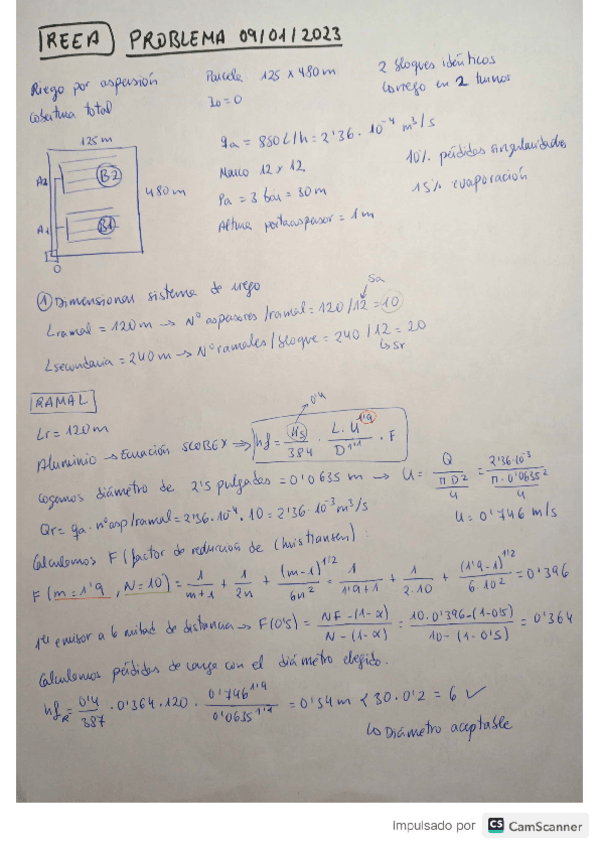 IREEA PROBLEMA 09/01/2023
Riego por aspersión
cobertura total
Parcela 125 x 480 m
I₀=0
2 bloques idénticos
Corrego en 2 turnos
qa = 850 L/h = 2'36·10⁻⁴ m³/s
Marco 12 x 12
Pa = 3 bar = 30 m
Altura portaaspersor = 1 m
10% pérdidas singularidades
15% evaporación
125 m
A2
B2
480 m
A1
B1
O
① Dimensionar sistema de riego
Sa
Lramal = 120 m → Nº aspersores/ramal = 120/12 = 10
Lsecundaria = 240 m → Nº ramales/bloque = 240/12 = 20
↳ Sr
RAMAL
Lr = 120 m
0'4
Aluminio → Ecuación SCOBEY ⇒ hf = Ks/384 · L·U^1'9/D^1'1 · F
Cogemos diámetro de 2'5 pulgadas = 0'0635 m → U = Q/(π D²/4) = 2'36·10⁻³/(π·0'0635²/4)
Qr = qa · nºasp/ramal = 2'36·10⁻⁴·10 = 2'36·10⁻³ m³/s
U = 0'746 m/s
Calculamos F (factor de reducción de Christiansen):
F (m = 1'9, N = 10) = 1/(m+1) + 1/2n + (m-1)^1/2/6n² = 1/(1'9+1) + 1/(2·10) + (1'9-1)^1/2/(6·10²) = 0'396
1er emisor a 6 mitad de distancia → F(0'5) = (NF-(1-α))/(N-(1-α)) = (10·0'396-(1-0'5))/(10-(1-0'5)) = 0'364
Calculamos pérdidas de carga con el diámetro elegido.
hfR = 0'4/387 · 0'364 · 120 · 0'746^1'9/0'0635^1'1 = 0'54 m < 30·0'2 = 6 ✓
↳ Diámetro aceptable
Impulsado por CS CamScanner